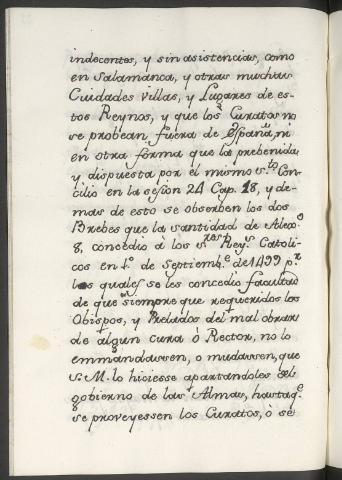 indecentes, y sin asistencias, como
en Salamanca, y otras muchas
Cuidades villas, y Lugares de es-
tos Reynos, y que los Curatos no
se probean fuera de España, ni
en otra forma que la prebenida
y dispuesta por el mismo s.to Con-
cilio en la sesion 24 Cap. 18, y de-
mas de esto se observen los dos
Brebes que la santidad de Alex.o
8, concedio à los s.res Rey.s Catoli-
cos en 1.o de Septiemb.e de 1499 p.r
los quales se les concedio facultad
de que siempre que requeridos los
Obispos, y Prelados del mal obrar
de algun cura ò Rector, no lo
emmendassen, o mudassen, que
S. M. lo hiciesse apartandoles del
gobierno de las Almas, hasta q.e
se proveyessen los Curatos, ò se